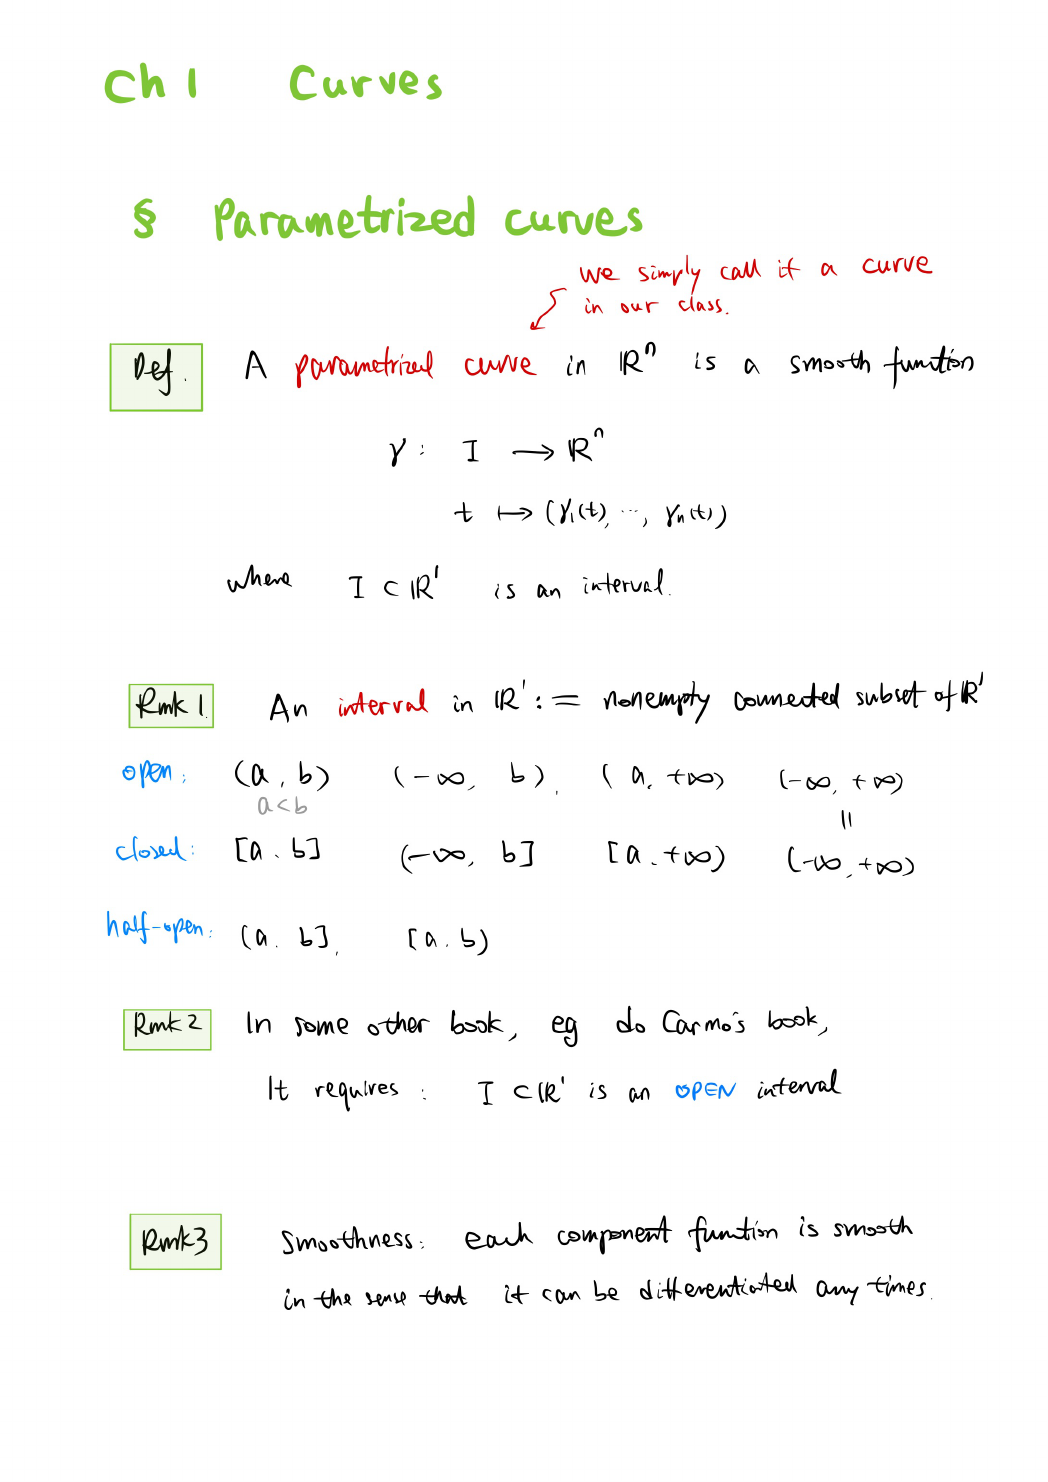 Ch 1 Curves
§ Parametrized curves
we simply call it a curve
in our class.
Def. A parametrized curve in ℝⁿ is a smooth function
γ : I ⟶ ℝⁿ
t ⟼ (γ₁(t), ⋯, γₙ(t))
where I ⊂ ℝ¹ is an interval.
Rmk 1. An interval in ℝ¹ := nonempty connected subset of ℝ¹
open: (a, b) (-∞, b), (a, +∞) (-∞, +∞)
a<b
॥
closed: [a, b] (-∞, b] [a, +∞) (-∞, +∞)
half-open: (a, b], [a, b)
Rmk 2 In some other book, eg do Carmo's book,
It requires: I ⊂ ℝ¹ is an OPEN interval
Rmk 3 Smoothness: each component function is smooth
in the sense that it can be differentiated any times.